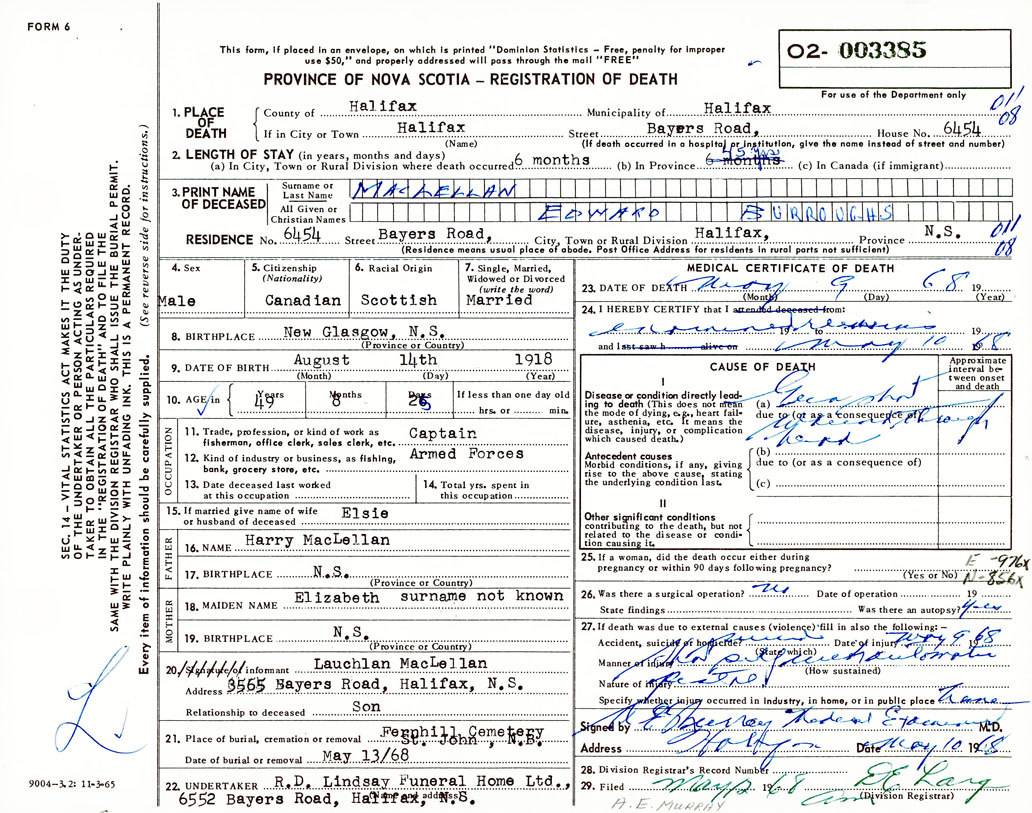 FORM 6
This form, if placed in an envelope, on which is printed "Dominion Statistics – Free, penalty for improper
use $50," and properly addressed will pass through the mail "FREE"
PROVINCE OF NOVA SCOTIA – REGISTRATION OF DEATH
02- 003385
For use of the Department only
SEC. 14 – VITAL STATISTICS ACT MAKES IT THE DUTY
OF THE UNDERTAKER OR PERSON ACTING AS UNDER-
TAKER TO OBTAIN ALL THE PARTICULARS REQUIRED
IN THE "REGISTRATION OF DEATH" AND TO FILE THE
SAME WITH THE DIVISION REGISTRAR WHO SHALL ISSUE THE BURIAL PERMIT.
WRITE PLAINLY WITH UNFADING INK. THIS IS A PERMANENT RECORD.
Every item of information should be carefully supplied. (See reverse side for instructions.)
1. PLACE OF DEATH County of Halifax Municipality of Halifax 011
If in City or Town Halifax Street Bayers Road, House No. 6454 08
(Name) (If death occurred in a hospital or institution, give the name instead of street and number)
2. LENGTH OF STAY (in years, months and days)
(a) In City, Town or Rural Division where death occurred 6 months (b) In Province 6 months 45 yrs (c) In Canada (if immigrant)
3. PRINT NAME OF DECEASED Surname or Last Name MACLELLAN
All Given or Christian Names EDWARD BURROUGHS
RESIDENCE No. 6454 Street Bayers Road, City, Town or Rural Division Halifax, Province N.S. 011
(Residence means usual place of abode. Post Office Address for residents in rural parts not sufficient) 08
4. Sex 5. Citizenship (Nationality) 6. Racial Origin 7. Single, Married, Widowed or Divorced (write the word)
Male Canadian Scottish Married
8. BIRTHPLACE New Glasgow, N.S.
(Province or Country)
9. DATE OF BIRTH August 14th 1918
(Month) (Day) (Year)
10. AGE in Years Months Days If less than one day old
49 8 25 hrs. or min.
OCCUPATION
11. Trade, profession, or kind of work as Captain
fisherman, office clerk, sales clerk, etc.
12. Kind of industry or business, as fishing, Armed Forces
bank, grocery store, etc.
13. Date deceased last worked at this occupation 14. Total yrs. spent in this occupation
15. If married give name of wife or husband of deceased Elsie
FATHER
16. NAME Harry MacLellan
17. BIRTHPLACE N.S.
(Province or Country)
MOTHER
18. MAIDEN NAME Elizabeth surname not known
19. BIRTHPLACE N.S.
(Province or Country)
20. Signature of informant Lauchlan MacLellan
Address 3565 Bayers Road, Halifax, N.S.
Relationship to deceased Son
21. Place of burial, cremation or removal Fernhill Cemetery St. John, N.B.
Date of burial or removal May 13/68
22. UNDERTAKER R.D. Lindsay Funeral Home Ltd.,
(Name and address)
6552 Bayers Road, Halifax, N.S.
MEDICAL CERTIFICATE OF DEATH
23. DATE OF DEATH May 9 68 19
(Month) (Day) (Year)
24. I HEREBY CERTIFY that I attended deceased from:
examined remains 19 to 19
and last saw h alive on May 10 1968
CAUSE OF DEATH
Approximate interval between onset and death
I
Disease or condition directly leading to death (This does not mean the mode of dying, e.g., heart failure, asthenia, etc. It means the disease, injury, or complication which caused death.)
(a) Gun shot
due to (or as a consequence of)
wound, through
head
Antecedent causes
Morbid conditions, if any, giving rise to the above cause, stating the underlying condition last.
(b)
due to (or as a consequence of)
(c)
II
Other significant conditions
contributing to the death, but not related to the disease or condition causing it.
25. If a woman, did the death occur either during
pregnancy or within 90 days following pregnancy?
(Yes or No)
E -976X
N-856X
26. Was there a surgical operation? no Date of operation 19
State findings Was there an autopsy? yes
27. If death was due to external causes (violence) fill in also the following: –
Accident, suicide or homicide? Date of injury May 9 1968
(State which)
Manner of injury shot self with automatic
(How sustained)
Nature of injury pistol
Specify whether injury occurred in industry, in home, or in public place home
Signed by A E Murray Medical Examiner M.D.
Address Halifax Date May 10 1968
28. Division Registrar's Record Number
29. Filed May 1968
(Division Registrar)
A.E. MURRAY
9004–3.2: 11-3-65